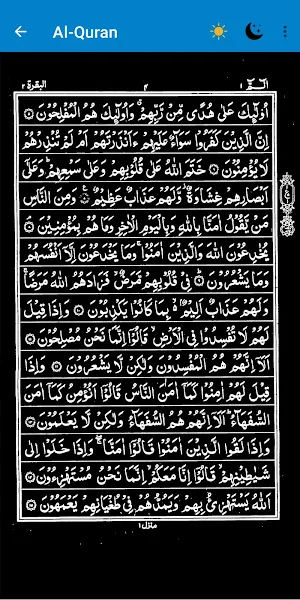 Al-Quran
البقرة ٢
٣
الٓمّٓ ١
اُولٰٓئِكَ عَلٰى هُدًى مِّنْ رَّبِّهِمْ ۙ وَاُولٰٓئِكَ هُمُ الْمُفْلِحُوْنَ ۝
اِنَّ الَّذِيْنَ كَفَرُوْا سَوَآءٌ عَلَيْهِمْ ءَاَنْذَرْتَهُمْ اَمْ لَمْ تُنْذِرْهُمْ
لَا يُؤْمِنُوْنَ ۝ خَتَمَ اللّٰهُ عَلٰى قُلُوْبِهِمْ وَعَلٰى سَمْعِهِمْ ؕ وَعَلٰٓى
اَبْصَارِهِمْ غِشَاوَةٌ ۫ وَّلَهُمْ عَذَابٌ عَظِيْمٌ ۝ وَمِنَ النَّاسِ
مَنْ يَّقُوْلُ اٰمَنَّا بِاللّٰهِ وَبِالْيَوْمِ الْاٰخِرِ وَمَا هُمْ بِمُؤْمِنِيْنَ ۝
يُخٰدِعُوْنَ اللّٰهَ وَالَّذِيْنَ اٰمَنُوْا ۚ وَمَا يَخْدَعُوْنَ اِلَّآ اَنْفُسَهُمْ
وَمَا يَشْعُرُوْنَ ۝ فِيْ قُلُوْبِهِمْ مَّرَضٌ ۙ فَزَادَهُمُ اللّٰهُ مَرَضًا ۚ
وَلَهُمْ عَذَابٌ اَلِيْمٌۢ ۙ بِمَا كَانُوْا يَكْذِبُوْنَ ۝ وَاِذَا قِيْلَ
لَهُمْ لَا تُفْسِدُوْا فِي الْاَرْضِ ۙ قَالُوْٓا اِنَّمَا نَحْنُ مُصْلِحُوْنَ ۝
اَلَآ اِنَّهُمْ هُمُ الْمُفْسِدُوْنَ وَلٰكِنْ لَّا يَشْعُرُوْنَ ۝ وَاِذَا
قِيْلَ لَهُمْ اٰمِنُوْا كَمَآ اٰمَنَ النَّاسُ قَالُوْٓا اَنُؤْمِنُ كَمَآ اٰمَنَ
السُّفَهَآءُ ؕ اَلَآ اِنَّهُمْ هُمُ السُّفَهَآءُ وَلٰكِنْ لَّا يَعْلَمُوْنَ ۝
وَاِذَا لَقُوا الَّذِيْنَ اٰمَنُوْا قَالُوْٓا اٰمَنَّا ۖۚ وَاِذَا خَلَوْا اِلٰى
شَيٰطِيْنِهِمْ ۙ قَالُوْٓا اِنَّا مَعَكُمْ ۙ اِنَّمَا نَحْنُ مُسْتَهْزِءُوْنَ ۝
اَللّٰهُ يَسْتَهْزِئُ بِهِمْ وَيَمُدُّهُمْ فِيْ طُغْيَانِهِمْ يَعْمَهُوْنَ ۝
منزل ١